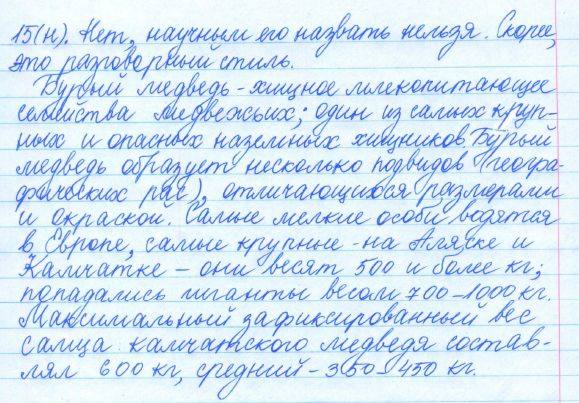 15(н). Нет, научным его назвать нельзя. Скорее,
это разговорный стиль.
Бурый медведь - хищное млекопитающее
семейства медвежьих; один из самых круп-
ных и опасных наземных хищников. Бурый
медведь образует несколько подвидов (геогра-
фических рас), отличающихся размерами
и окраской. Самые мелкие особи водятся
в Европе, самые крупные - на Аляске и
Камчатке – они весят 500 и более кг;
попадались гиганты весом 700-1000 кг.
Максимальный зафиксированный вес
самца камчатского медведя состав-
лял 600 кг, средний - 350-450 кг.